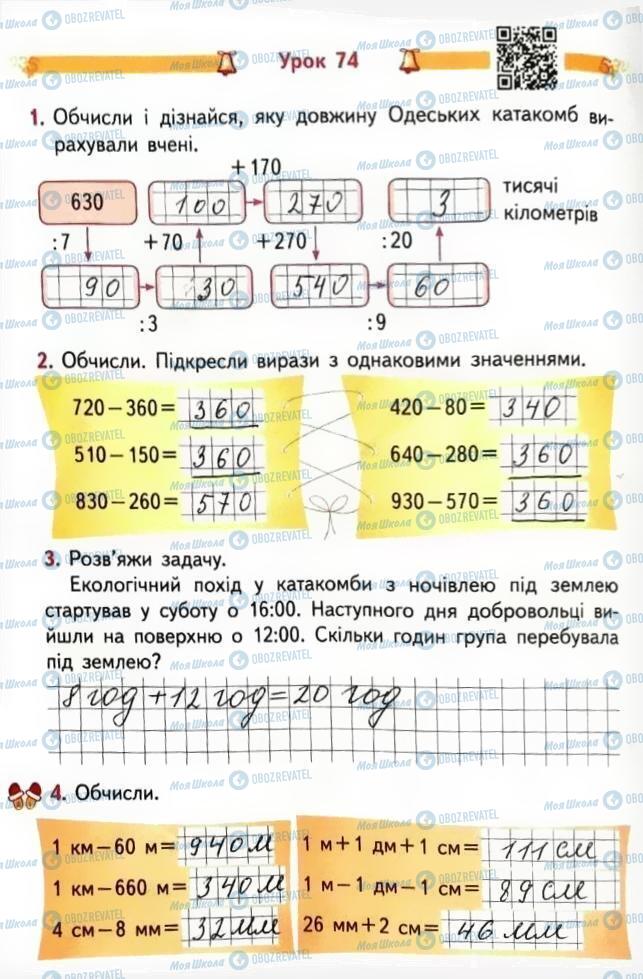 Урок 74
1. Обчисли і дізнайся, яку довжину Одеських катакомб ви-
рахували вчені.
+170
630 100 270 3 тисячі
кілометрів
:7 +70 +270 :20
90 30 540 60
:3 :9
2. Обчисли. Підкресли вирази з однаковими значеннями.
720−360= 360 420−80= 340
510−150= 360 640−280= 360
830−260= 570 930−570= 360
3. Розв'яжи задачу.
Екологічний похід у катакомби з ночівлею під землею
стартував у суботу о 16:00. Наступного дня добровольці ви-
йшли на поверхню о 12:00. Скільки годин група перебувала
під землею?
8 год + 12 год = 20 год
4. Обчисли.
1 км−60 м= 940 м 1 м+1 дм+1 см= 111 см
1 км−660 м= 340 м 1 м−1 дм−1 см= 89 см
4 см−8 мм= 32 мм 26 мм+2 см= 46 мм